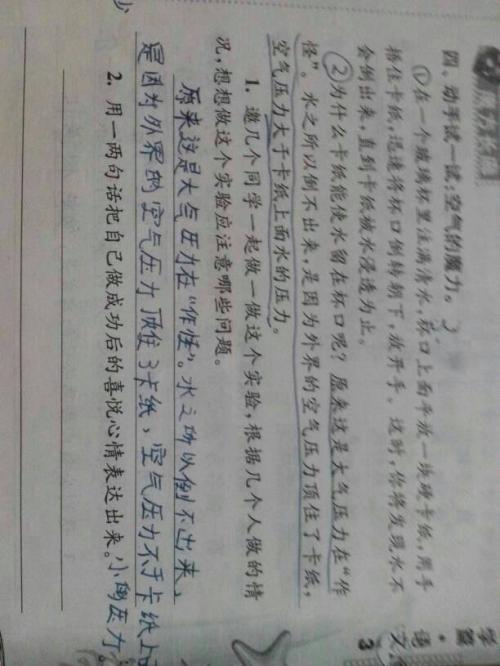 四、动手试一试：空气的魔力。
①在一个玻璃杯里注满清水，杯口上面平放一块硬卡纸，用手
捂住卡纸，迅速将杯口倒转朝下，放开手。这时，你将发现水不
会倒出来，直到卡纸被水浸透为止。
②为什么卡纸能使水留在杯口呢？原来这是大气压力在“作
怪”。水之所以倒不出来，是因为外界的空气压力顶住了卡纸，
空气压力大于卡纸上面水的压力。
1. 邀几个同学一起做一做这个实验，根据几个人做的情
况，想想做这个实验应注意哪些问题。
原来这是大气压力在“作怪”。水之所以倒不出来，
是因为外界的空气压力顶住了卡纸，空气压力不于卡纸上
2. 用一两句话把自己做成功后的喜悦心情表达出来。
学
语文
3